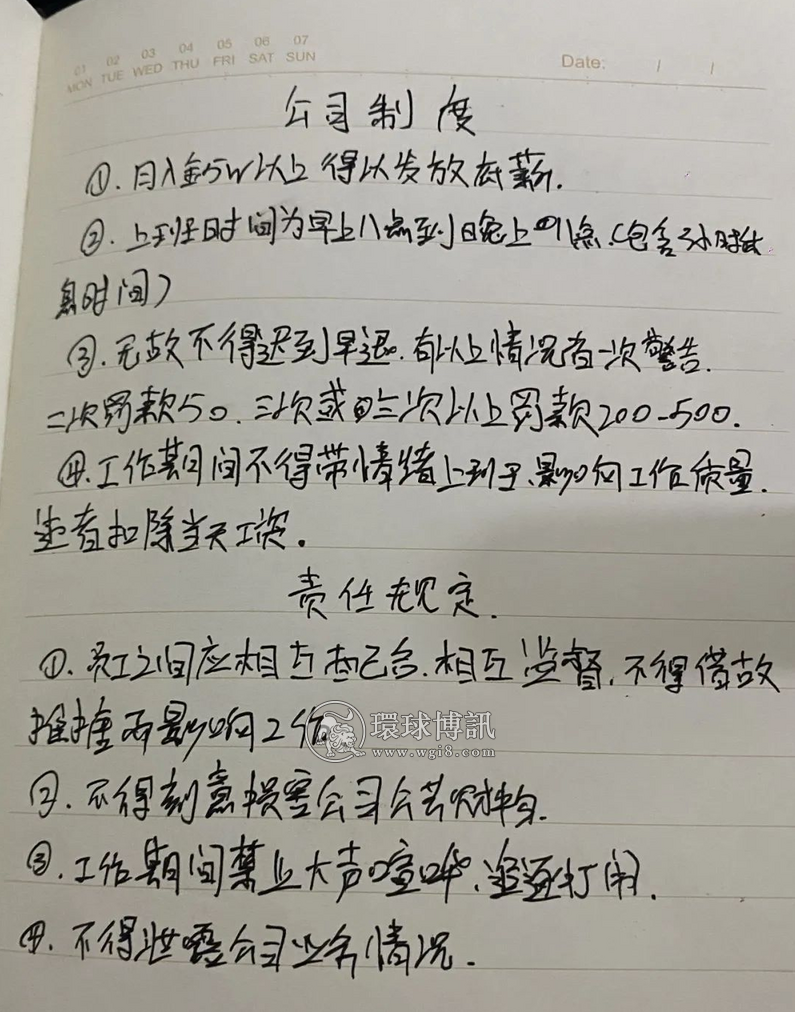 01 02 03 04 05 06 07
MON TUE WED THU FRI SAT SUN
Date: / /
公司制度
①.月入金5W以上得以发放底薪.
②.上班时间为早上八点到晚上 点(包含3小时休
息时间)
③.无故不得迟到早退.有以上情况者一次警告.
二次罚款50.三次或三次以上罚款200-500.
④.工作期间不得带情绪上班,影响工作质量.
违者扣除当天工资。
责任规定.
①.员工之间应相互配合.相互监督,不得借故
推搪而影响工作
環球博訊
www.wgi8.com
②.不得刻意损害公司公共财物.
③.工作期间禁止大声喧哗、追逐打闹.
④.不得泄露公司业务情况.